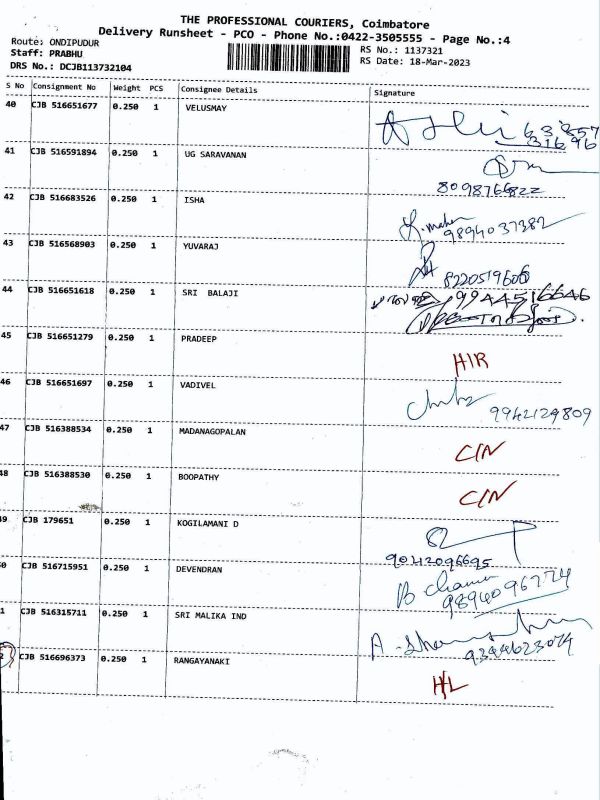 THE PROFESSIONAL COURIERS, Coimbatore
Delivery Runsheet - PCO - Phone No.:0422-3505555 - Page No.:4
Route: ONDIPUDUR
Staff: PRABHU
DRS No.: DCJB113732104
RS No.: 1137321
RS Date: 18-Mar-2023
S No Consignment No Weight PCS Consignee Details Signature
40 CJB 516651677 0.250 1 VELUSMAY
41 CJB 516591894 0.250 1 UG SARAVANAN
8098766822
42 CJB 516683526 0.250 1 ISHA
9894037382
43 CJB 516568903 0.250 1 YUVARAJ
8220519606
44 CJB 516651618 0.250 1 SRI BALAJI
9944516646
45 CJB 516651279 0.250 1 PRADEEP
H/R
46 CJB 516651697 0.250 1 VADIVEL
9942129809
47 CJB 516388534 0.250 1 MADANAGOPALAN
C/N
48 CJB 516388530 0.250 1 BOOPATHY
C/N
49 CJB 179651 0.250 1 KOGILAMANI D
9042096695
0 CJB 516715951 0.250 1 DEVENDRAN
9894096774
1 CJB 516315711 0.250 1 SRI MALIKA IND
9344623074
2 CJB 516696373 0.250 1 RANGAYANAKI
H/L